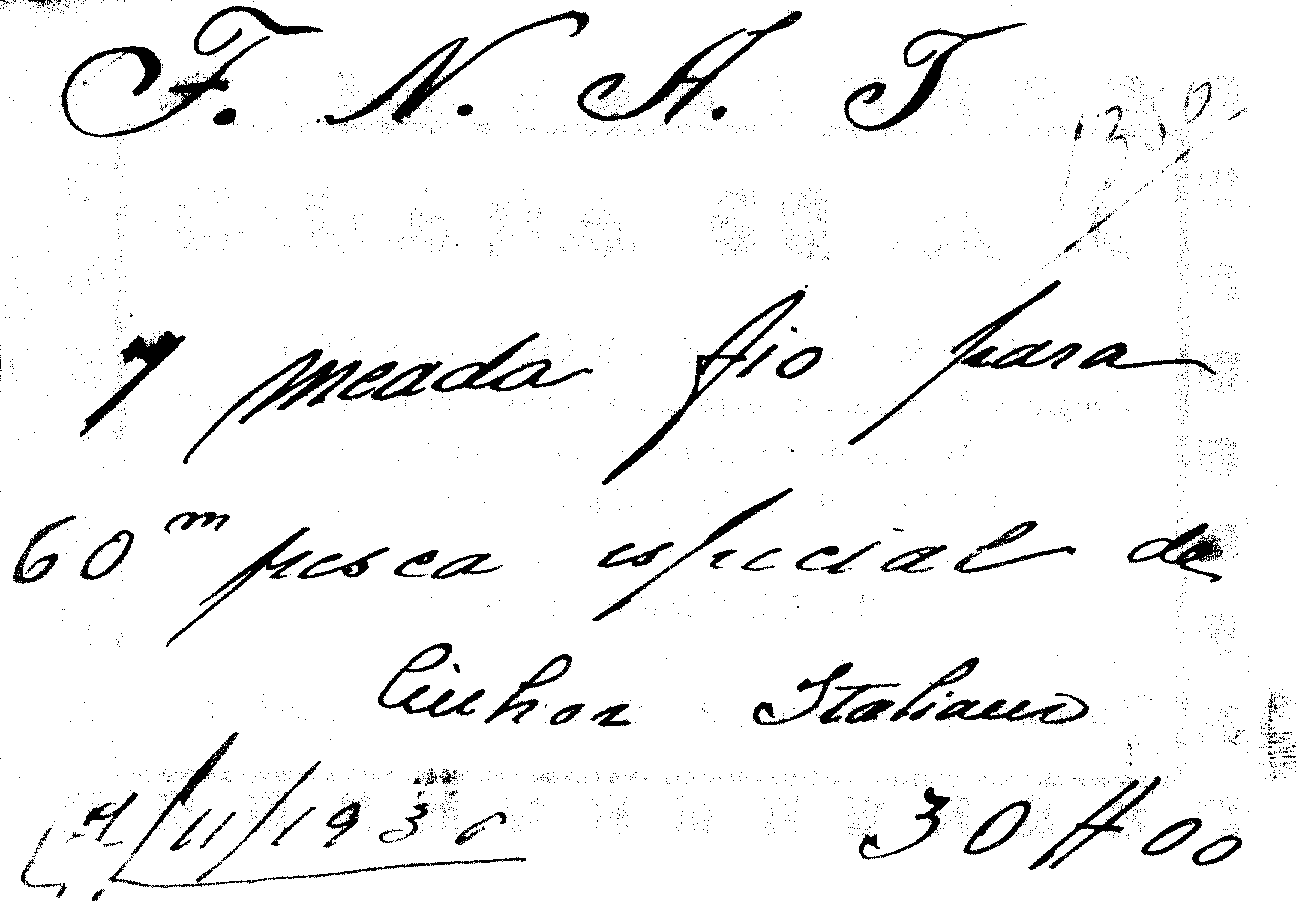 F. N. A. T
1 meada fio para
60 m pesca especial de
linhos Italiano
4/11/1936
30$00